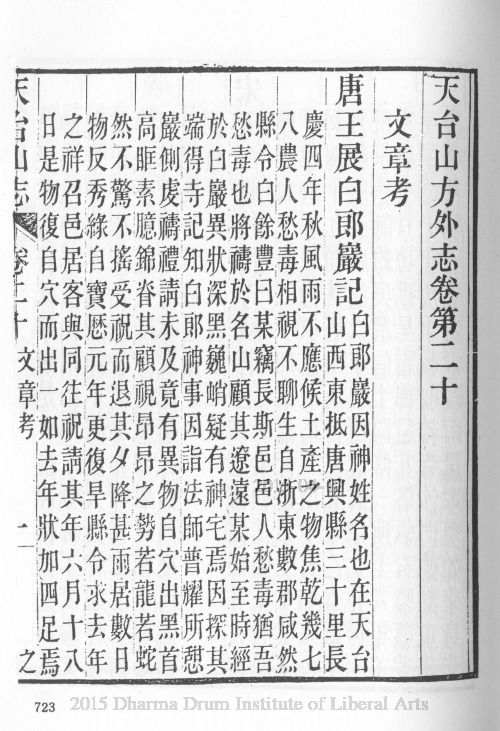 天台山方外志卷第二十
文章考
唐王展白郎巖記
白郎巖因神姓名也在天台
山西東抵唐興縣三十里長
慶四年秋風雨不應候土產之物焦乾幾七
八農人愁毒相視不聊生自浙東數郡咸然
縣令白餘豐曰某竊長斯邑邑人愁毒猶吾
愁毒也將禱於名山顧其遼遠某始至時經
於白巖異狀深黑巍峭疑有神宅焉因探其
端得寺記知白郎神事因詣法師普耀所憇
巖側虔禱禮請未及竟有異物自穴出黑首
高眶素臆錦脊其顧視昂昂之勢若龍若蛇
然不驚不搖受祝而退其夕降甚雨居數日
物反秀緣自寶曆元年更復旱縣令求去年
之祥召邑居客與同往祝請其年六月十八
日是物復自穴而出一如去年狀加四足焉
天台山志 卷二十 文章考 一 之
723 2015 Dharma Drum Institute of Liberal Arts